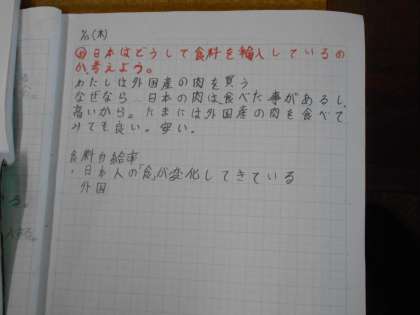 (木)
め 日本はどうして食料を輸入しているの
か考えよう。
わたしは外国産の肉を買う
なぜなら 日本の肉は食べた事があるし、
高いから。たまには外国産の肉を食べて
みても良い。安い。
食料自給率
・日本人の「食」が変化してきている
外国